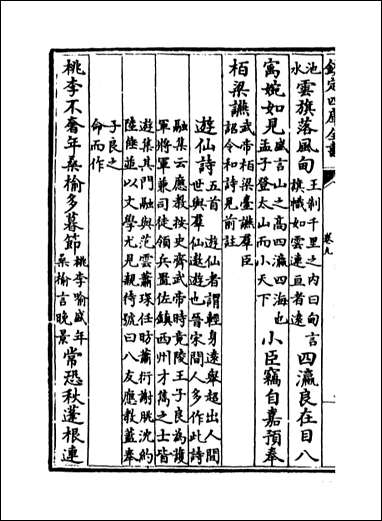 欽定四庫全書
卷九
池水雲旗落風甸王制千里之内曰甸言旗幟如雲連亘者遠四瀛良在目八
寓婉如見盛言山之高四瀛四海也孟子登太山而小天下小臣竊自嘉預奉
栢梁讌武帝栢梁臺讌羣臣詔令和詩見前註
遊仙詩五首遊仙者謂輕身遠舉超出人間世與羣仙遨遊也晉宋間人多作此詩
融集云應教按史齊武帝時竟陵王子良為護軍將軍兼司徒領兵置佐鎮西州才雋之士皆
遊集其門融與范雲蕭琛任昉蕭衍謝朓沈約陸陲並以文學尤見親待號曰八友應教蓋奉
子良之命而作
桃李不奢年桑榆多暮節桃李喻盛年桑榆言晚景常恐秋蓬根連